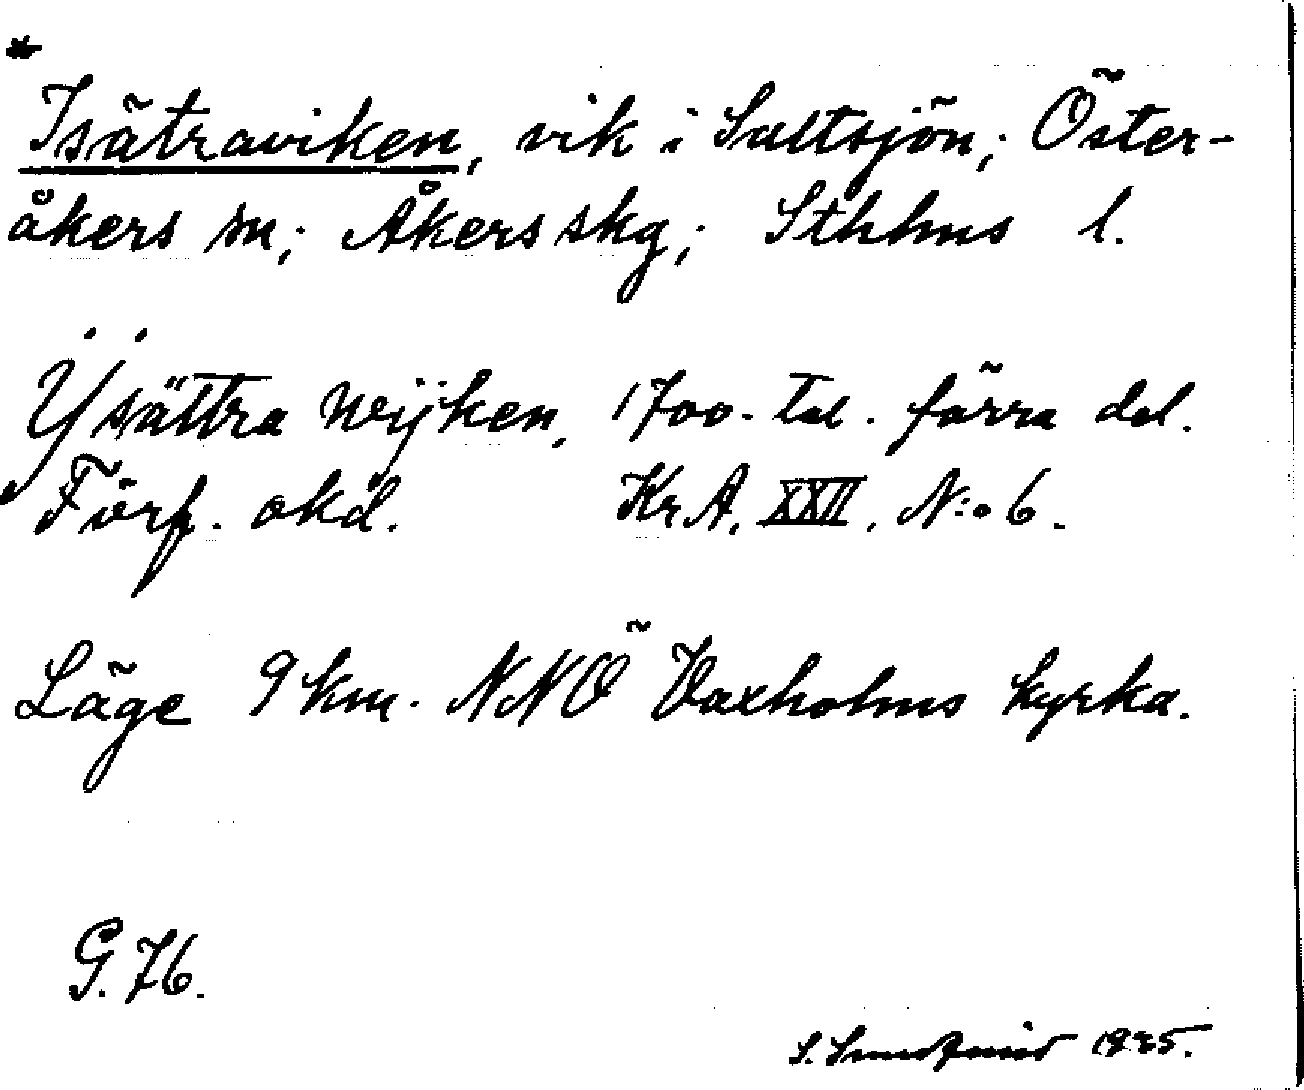 *
Isätraviken, vik i Saltsjön; Öster-
åkers sn; Åkers skg; Sthlms l.
Ÿsättra Wijken, 1700-tal. förra del.
Förf. okd. KrA. XXII, N:o 6.
Läge 9 km. NNÖ Vaxholms kyrka.
G. 76.
S.